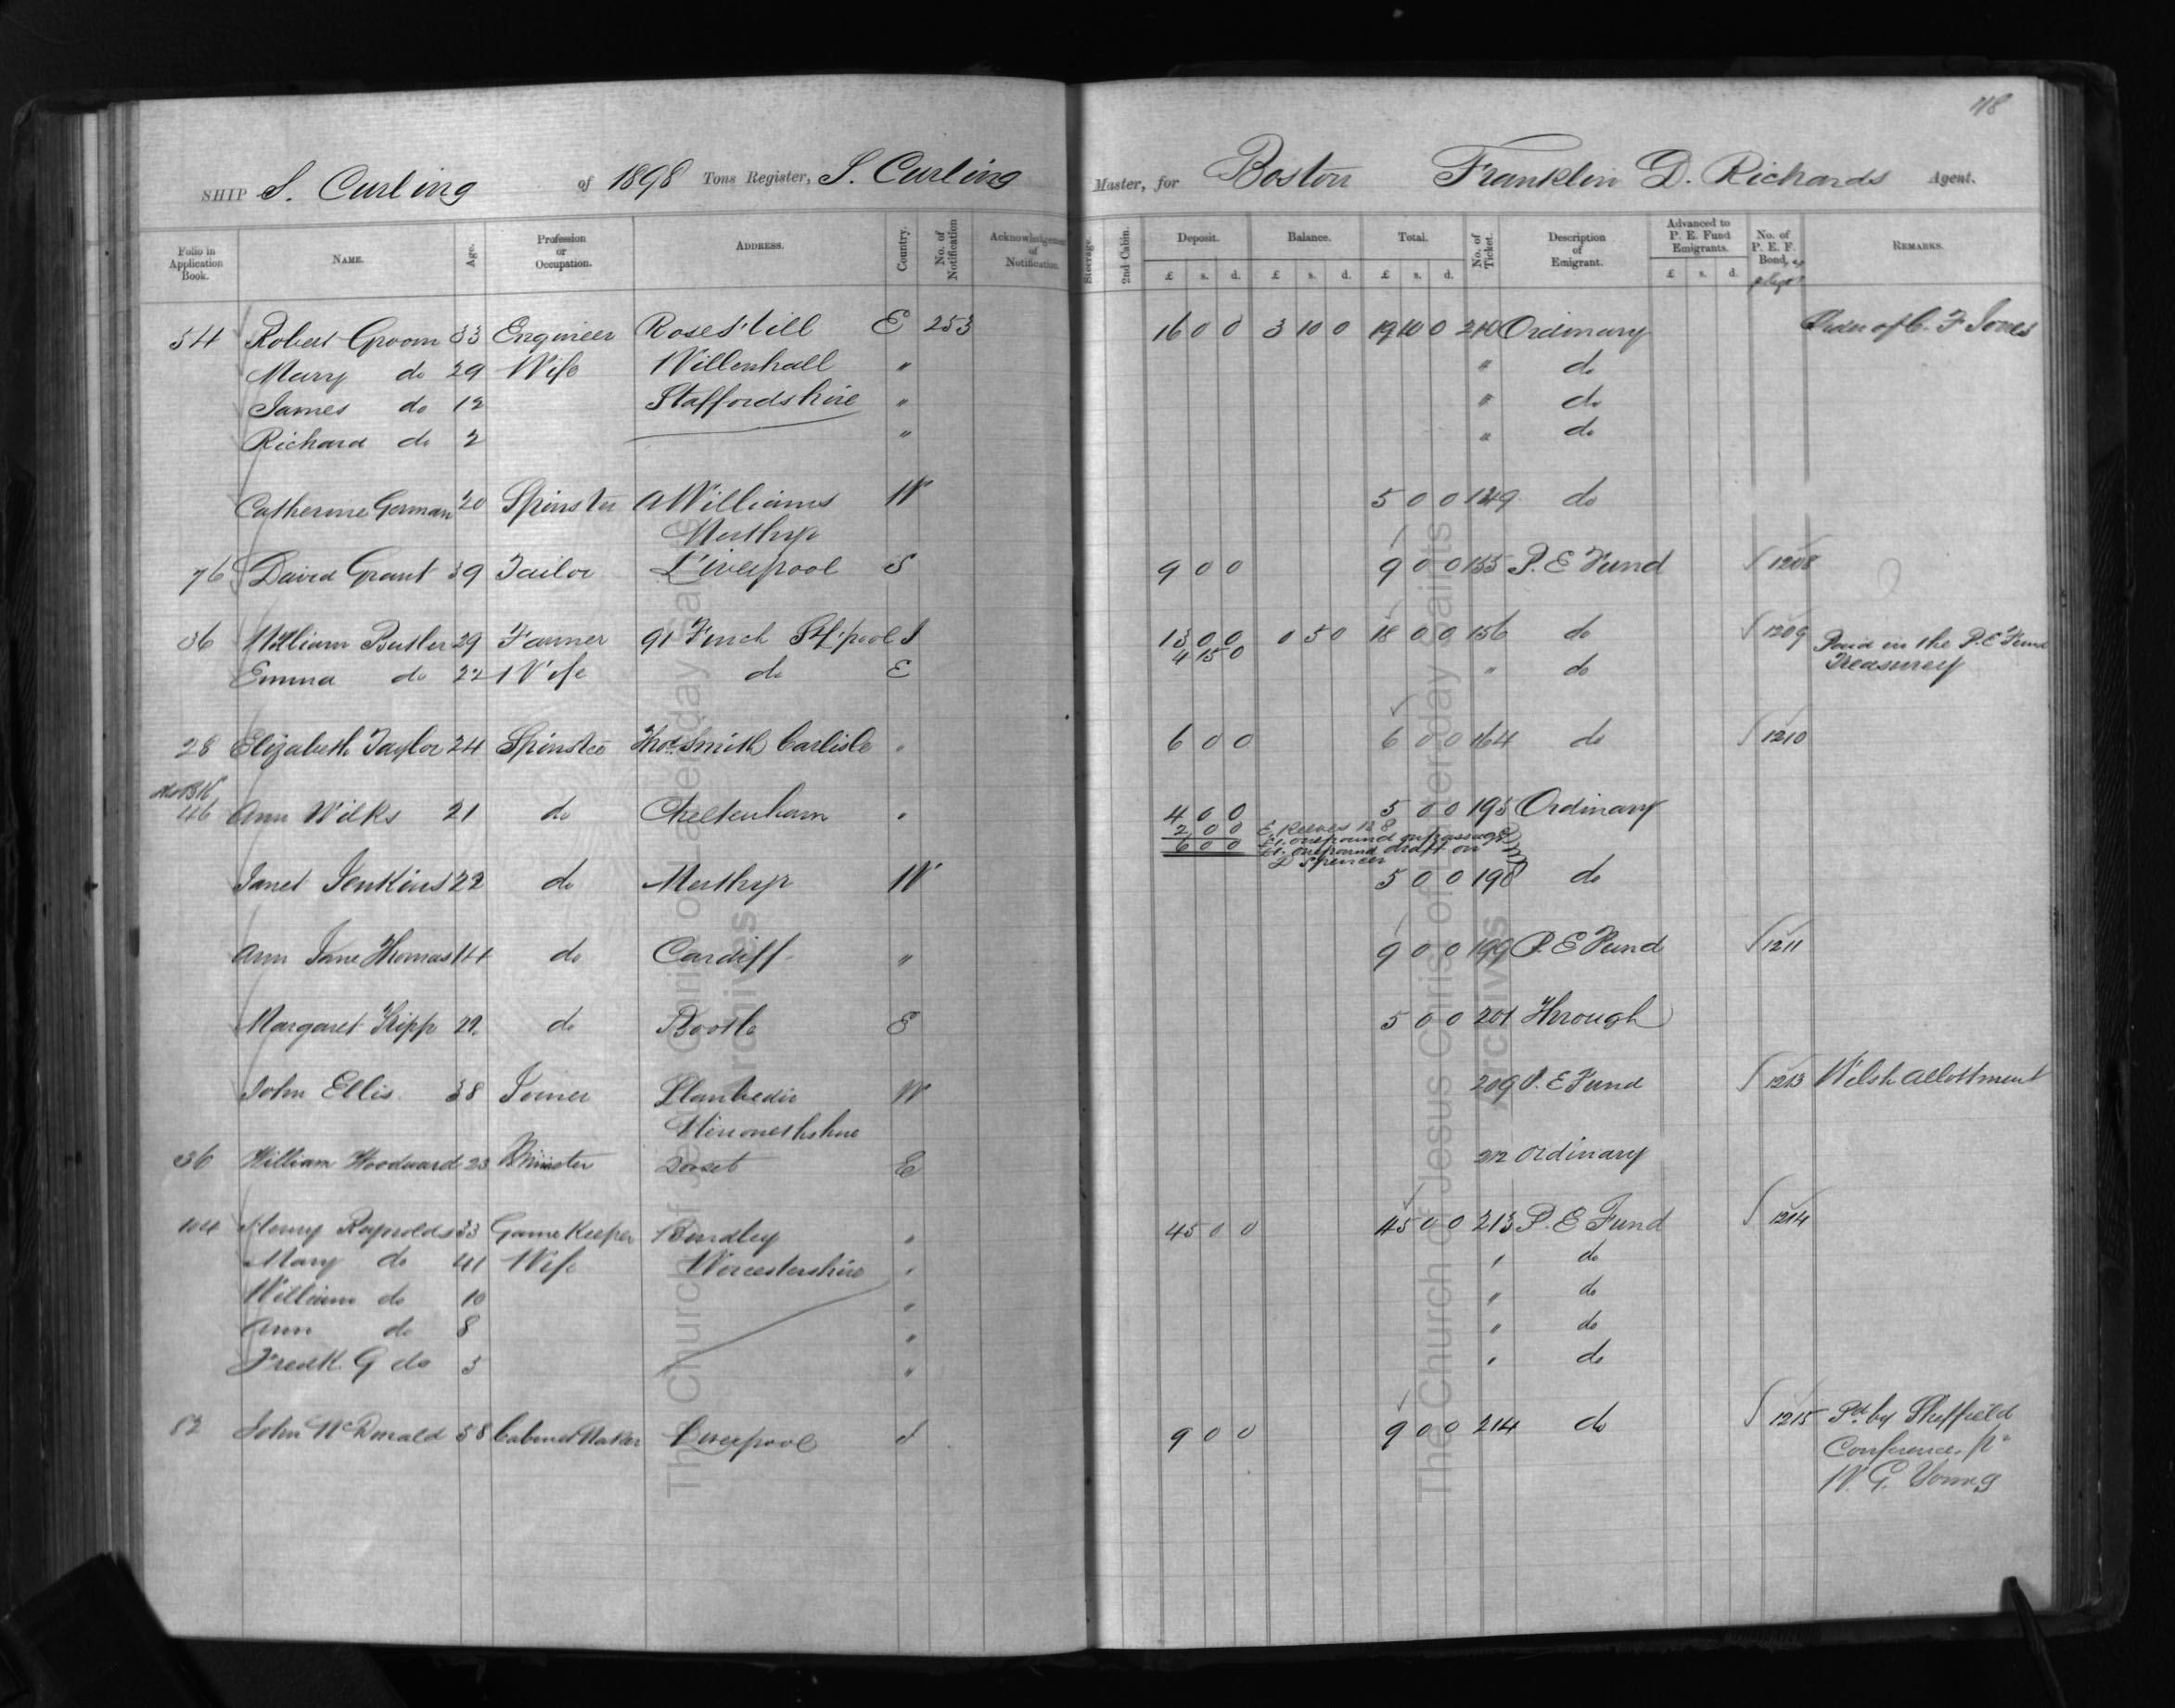 78
SHIP S. Curling of 1898 Tons Register, S. Curling Master, for Boston Franklin D. Richards Agent.
Folio in Application Book. NAME. Age. Profession or Occupation. ADDRESS. Country. No. of Notification Acknowledgement of Notification. Steerage. 2nd Cabin. Deposit. £ s. d. Balance. £ s. d. Total. £ s. d. No. of Ticket. Description of Emigrant. Advanced to P. E. Fund Emigrants. £ s. d. No. of P. E. F. Bond, REMARKS.
54 Robert Groom 33 Engineer Rose Hill E 253 16 0 0 3 10 0 19 10 0 210 Ordinary Order of C. F Jones
Mary do 29 Wife Willenhall " " do
James do 12 Staffordshire " " do
Richard do 2 " " do
Catherine Gorman 20 Spinster A Williams W 5 0 0 149 do
Merthyr
76 David Grant 39 Tailor Liverpool S 9 0 0 9 0 0 155 P. E Fund 1208
36 William Butler 29 Farmer 91 Finch St L'pool I 13 0 0 0 5 0 18 0 0 156 do 1209 Paid in the P. E Fund
4 15 0
Emma do 22 Wife do E " do Treasurey
28 Elizabeth Taylor 24 Spinster Thos Smith Carlisle " 6 0 0 6 0 0 164 do 1210
46 Ann Wilks 21 do Cheltenham " 4 0 0 5 0 0 195 Ordinary
2 0 0 E. Reeves
6 0 0 one pound on passage
one pound draft on
D Spencer
Janet Jenkins 22 do Merthyr W 5 0 0 198 do
Ann Jane Thomas 14 do Cardiff " 9 0 0 199 P. E Fund 1211
Margaret Kipp 22 do Bootle E 5 0 0 201 Through
John Ellis 38 Joiner Llanbedir W 209 P. E Fund 1213 Welsh allottment
Merionethshire
36 William Woodward 23 Minister Dorset E 212 Ordinary
104 Henry Reynolds 33 Game Keeper Bewdley " 45 0 0 45 0 0 213 P. E Fund 1214
Mary do 41 Wife Worcestershire " " do
William do 10 " " do
Ann do 8 " " do
Fredk. G do 3 " " do
82 John McDonald 58 Cabinet Maker Liverpool I 9 0 0 9 0 0 214 do 1215 Pd by Sheffield
Conference, pr
W. G. Young
The Church of Jesus Christ of Latter-day Saints
Archives
The Church of Jesus Christ of Latter-day Saints
Archives